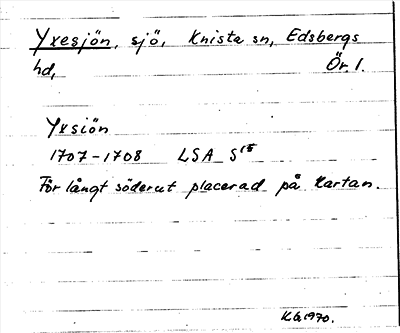 Yxesjön, sjö, Knista sn, Edsbergs
hd, Ör. l.
Yxsiön
1707-1708 LSA S15
För långt söderut placerad på kartan.
K.G. 1970.